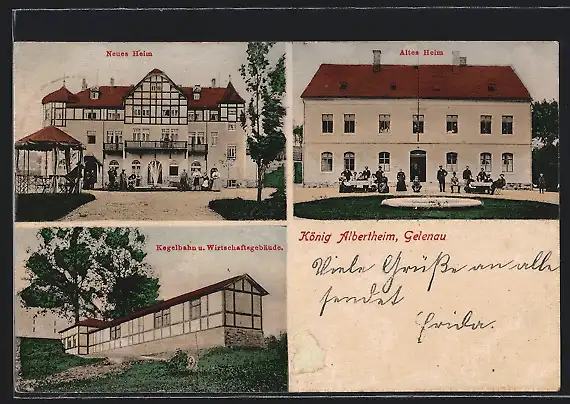 Neues Heim
Altes Heim
Kegelbahn u. Wirtschaftsgebäude.
König Albertheim, Gelenau
Viele Grüße an alle
sendet
Frida.